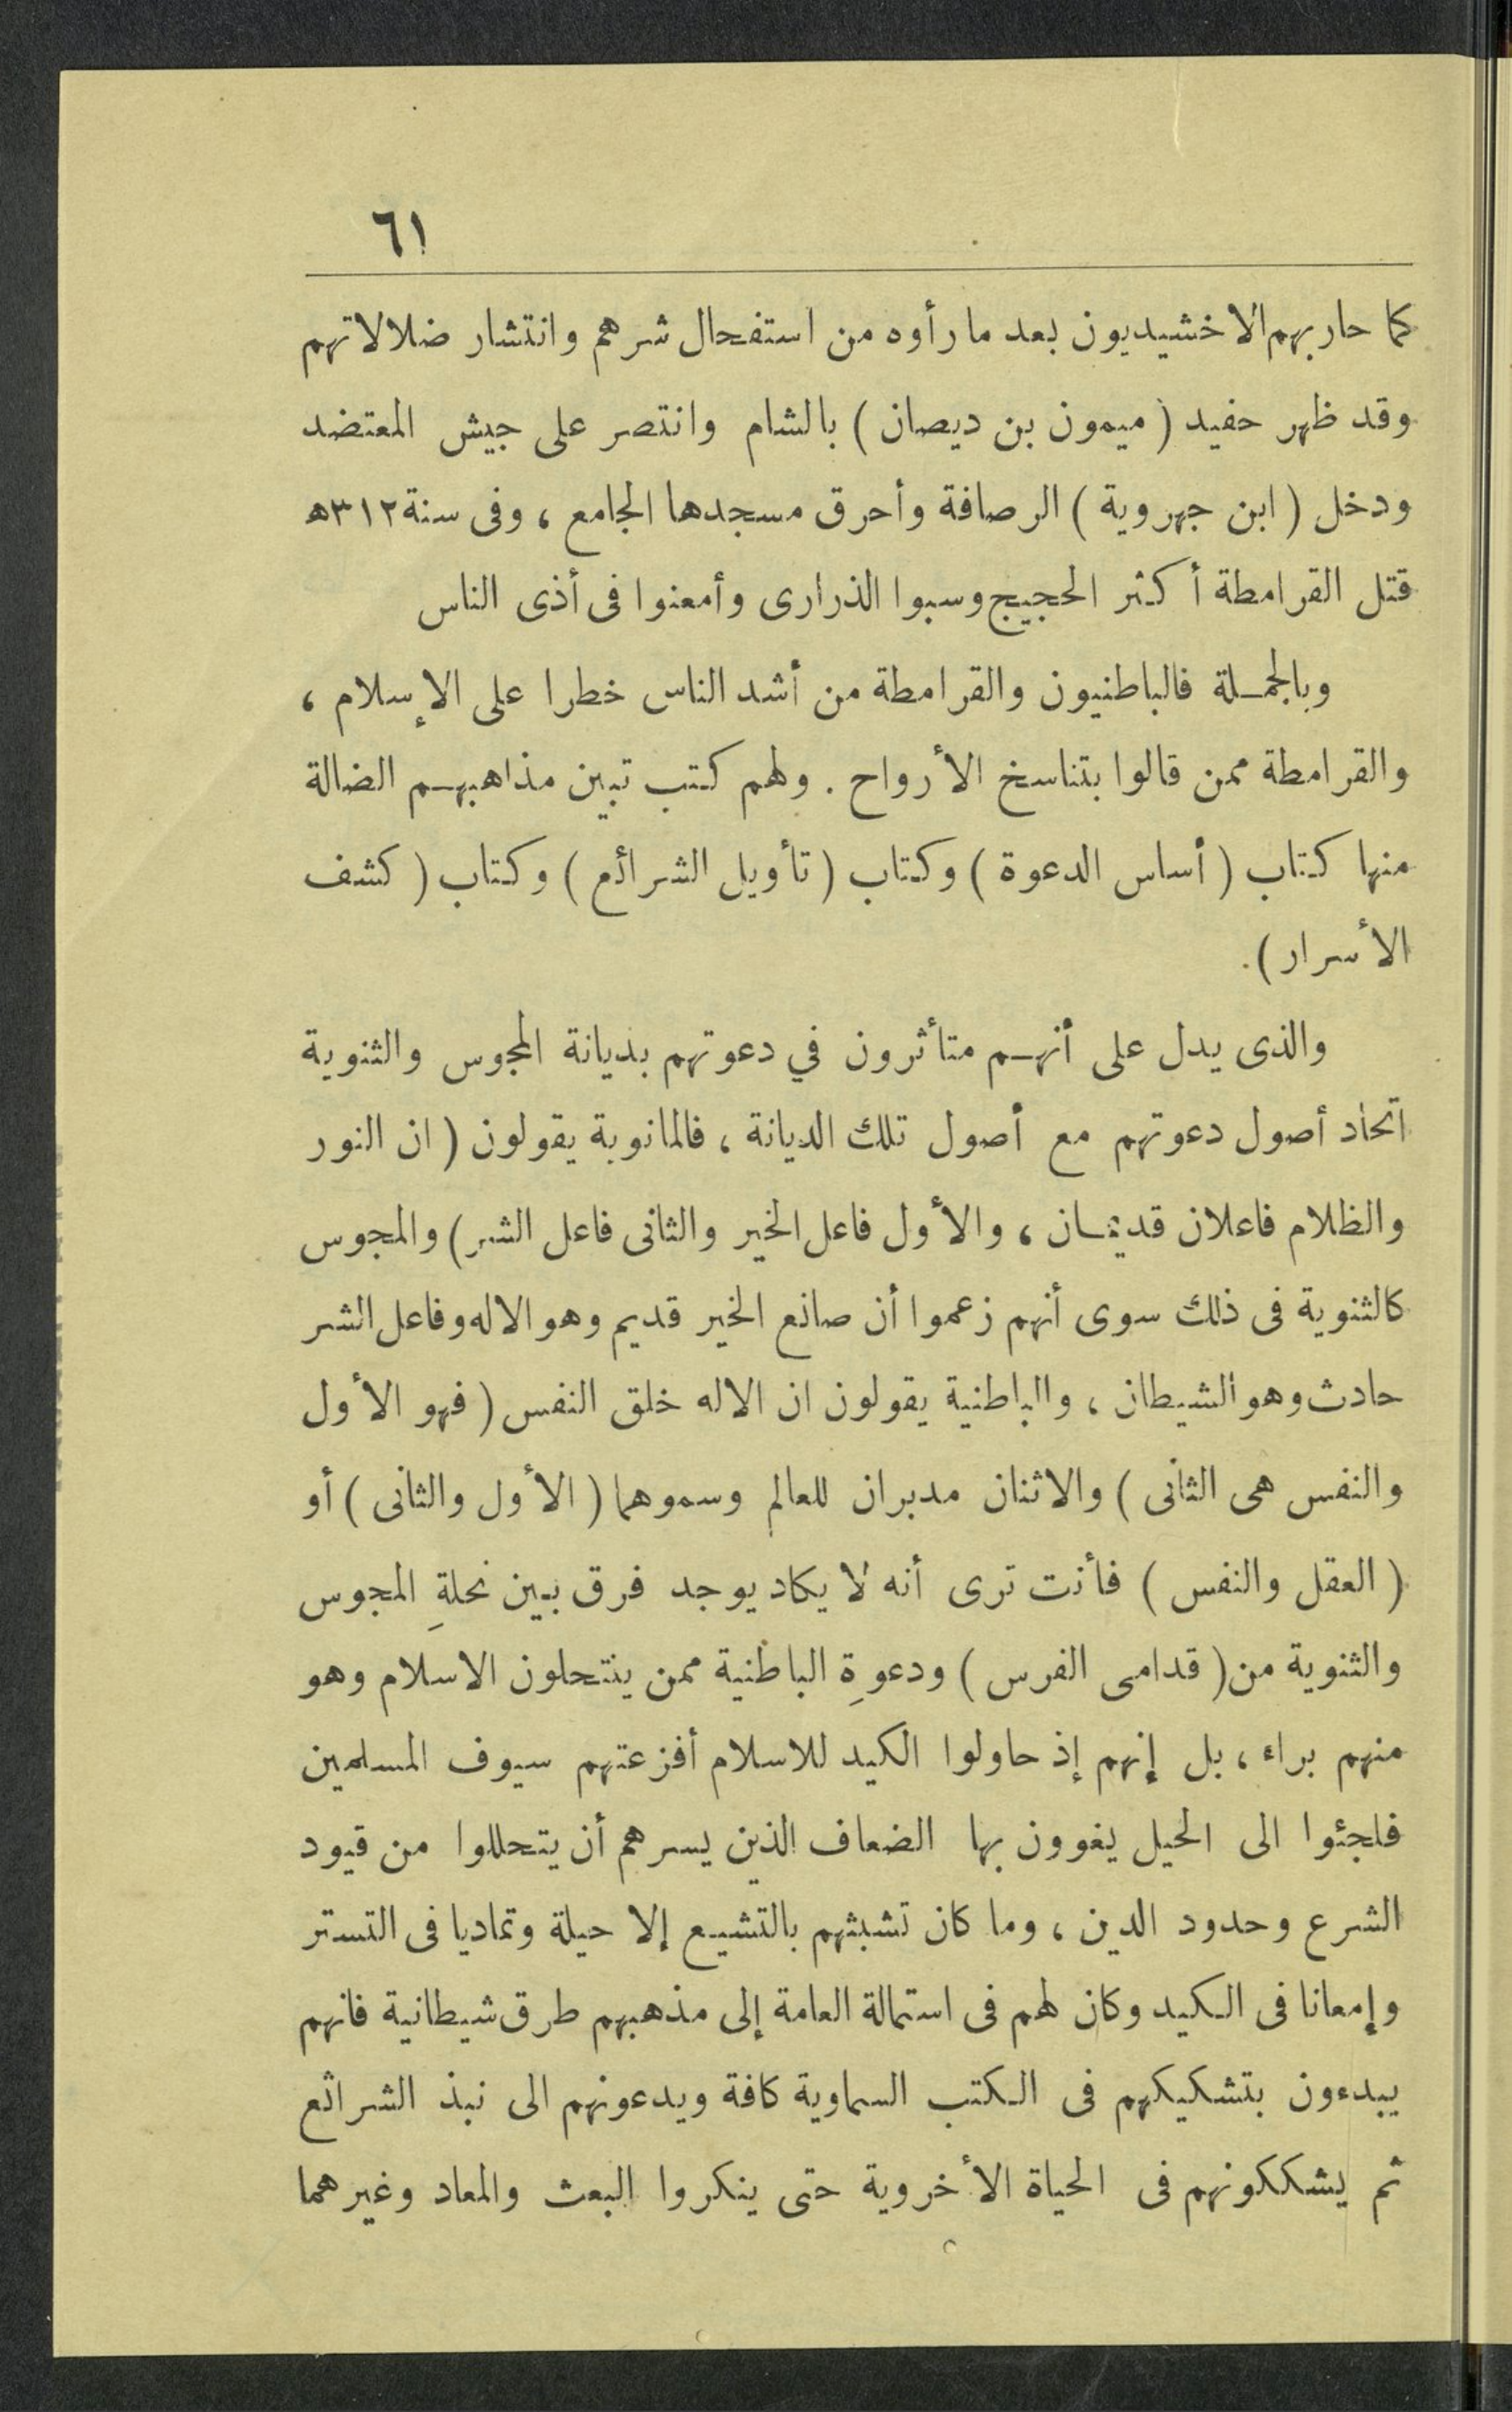 ٦١
كما حاربهم الاخشيديون بعد ما رأوه من استفحال شرهم وانتشار ضلالاتهم
وقد ظهر حفيد ( ميمون بن ديصان ) بالشام وانتصر على جيش المعتضد
ودخل ( ابن جهروية ) الرصافة وأحرق مسجدها الجامع ، وفى سنة ٣١٢ه
قتل القرامطة أكثر الحجيج وسبوا الذرارى وأمعنوا فى أذى الناس
وبالجملة فالباطنيون والقرامطة من أشد الناس خطرا على الإسلام ،
والقرامطة ممن قالوا بتناسخ الأرواح . ولهم كتب تبين مذاهبهم الضالة
منها كتاب ( أساس الدعوة ) وكتاب ( تأويل الشرائع ) وكتاب ( كشف
الأسرار ) .
والذى يدل على أنهم متأثرون في دعوتهم بديانة المجوس والثنوية
اتحاد أصول دعوتهم مع أصول تلك الديانة ، فالمانوية يقولون ( ان النور
والظلام فاعلان قديمان ، والأول فاعل الخير والثانى فاعل الشر ) والمجوس
كالثنوية فى ذلك سوى أنهم زعموا أن صانع الخير قديم وهو الاله وفاعل الشر
حادث وهو الشيطان ، والباطنية يقولون ان الاله خلق النفس ( فهو الأول
والنفس هى الثانى ) والاثنان مدبران للعالم وسموهما ( الأول والثانى ) أو
( العقل والنفس ) فأنت ترى أنه لا يكاد يوجد فرق بين نحلةِ المجوس
والثنوية من ( قدامى الفرس ) ودعوةِ الباطنية ممن ينتحلون الاسلام وهو
منهم براء ، بل إنهم إذ حاولوا الكيد للاسلام أفزعتهم سيوف المسلمين
فلجئوا الى الحيل يغوون بها الضعاف الذين يسرهم أن يتحللوا من قيود
الشرع وحدود الدين ، وما كان تشبثهم بالتشيع إلا حيلة وتماديا فى التستر
وإمعانا فى الكيد وكان لهم فى استمالة العامة إلى مذهبهم طرق شيطانية فانهم
يبدءون بتشكيكهم فى الكتب السماوية كافة ويدعونهم الى نبذ الشرائع
ثم يشككونهم فى الحياة الأخروية حتى ينكروا البعث والمعاد وغيرهما